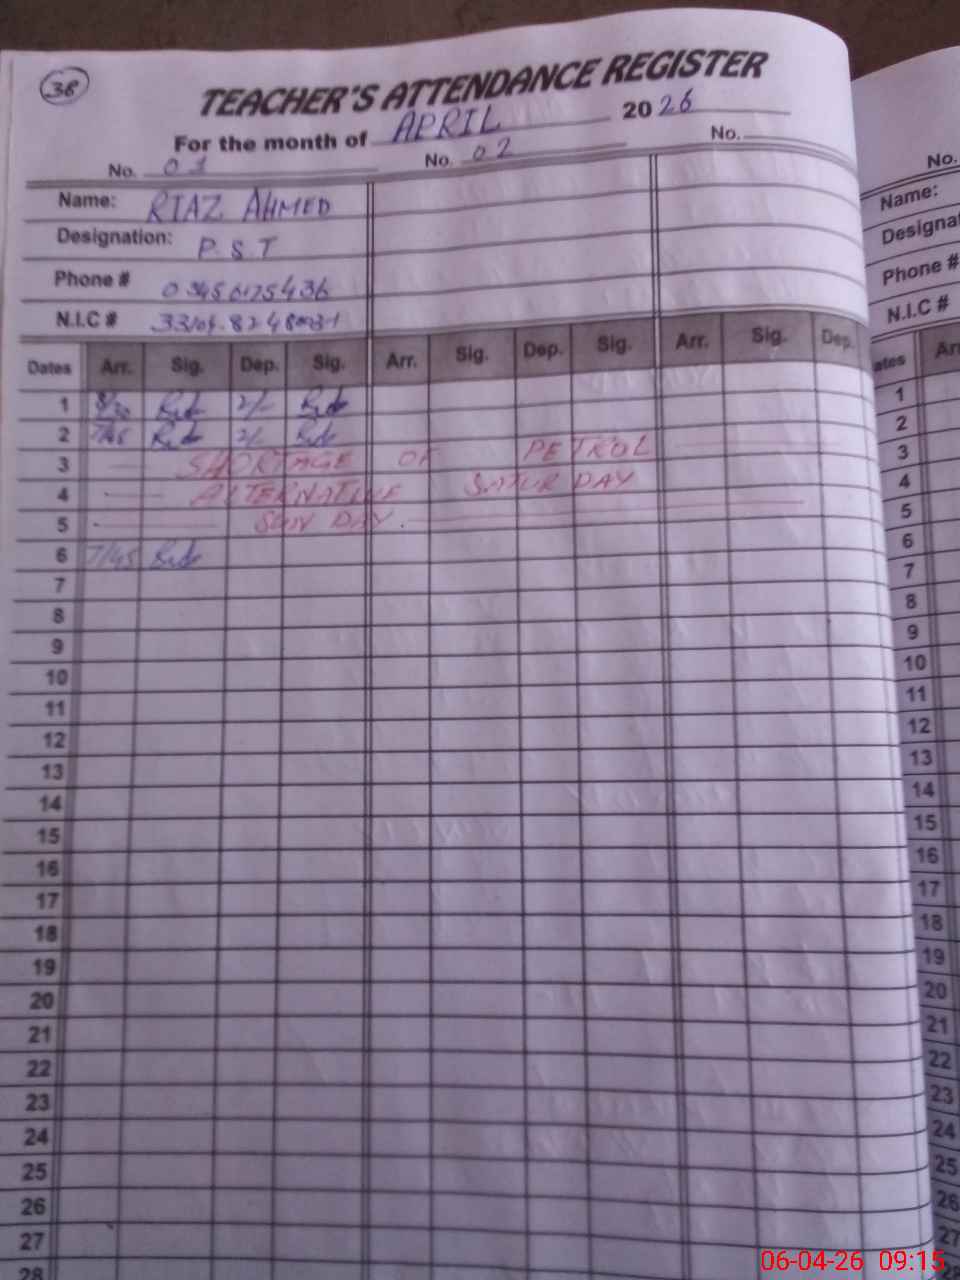 38
TEACHER'S ATTENDANCE REGISTER
For the month of APRIL 2026
No. 01 No. 02 No.
Name: RIAZ AHMED
Designation: P.S.T
Phone #
N.I.C #
Dates Arr. Sig. Dep. Sig. Arr. Sig. Dep. Sig. Arr. Sig. Dep.
1 8/30 2/-
2 7/45 2/-
3 SHORTAGE OF PETROL
4 ALTERNATIVE SATURDAY
5 SUN DAY
6 7/45
7
8
9
10
11
12
13
14
15
16
17
18
19
20
21
22
23
24
25
26
27
28
No.
Name:
Phone #
N.I.C #
1
2
3
4
5
6
7
8
9
10
11
12
13
14
15
16
17
18
19
20
21
22
23
24
25
26
27
06-04-26 09:15